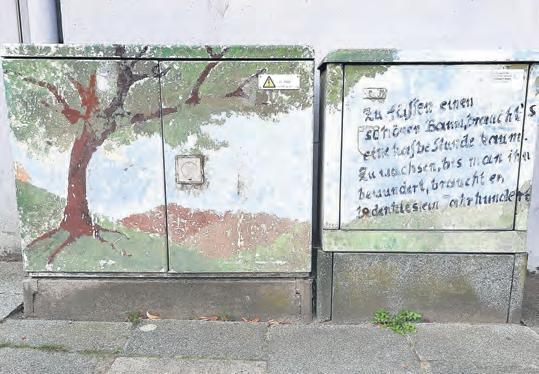 Zu fällen einen
schönen Baum, braucht's
eine halbe Stunde kaum.
Zu wachsen, bis man ihn
bewundert, braucht er,
ein Jahrhundert